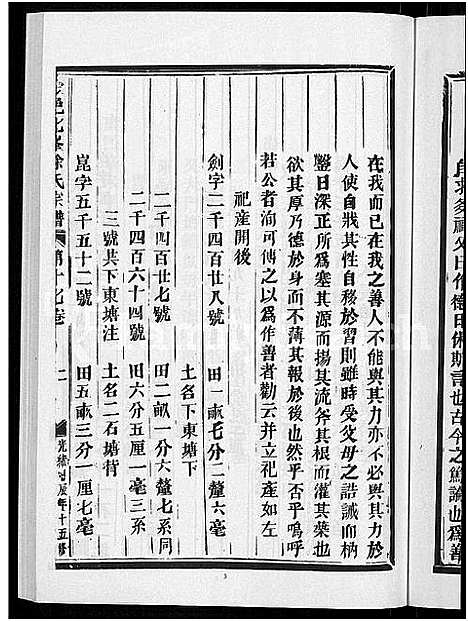 自求多福又曰作德日休斯言也古今之篤論也為善
在我而已在我之善人不能與其力亦不必與其力於
人使自戕其性自移於習則雖時受父母之誥誡而枘
鑿日深正所為塞其源而揚其流斧其根而灌其葉也
欲其厚乃德於身而不薄其報於後也然乎否乎嗚呼
若公者洵可傳之以為作善者勸云并立祀產如左
祀產開後
劍字二千四百廿八號 田一畝七分二釐六毫
土名下東塘下
二千四百廿七號 田二畝一分六釐七系同
二千四百六十四號 田六分五厘一毫三系
三號共下東塘注 土名二石塘背
崑字五千五十二號 田五畝三分一厘七毫
邑北峯徐氏宗譜 第十七卷 二 光緒 辰年十五修